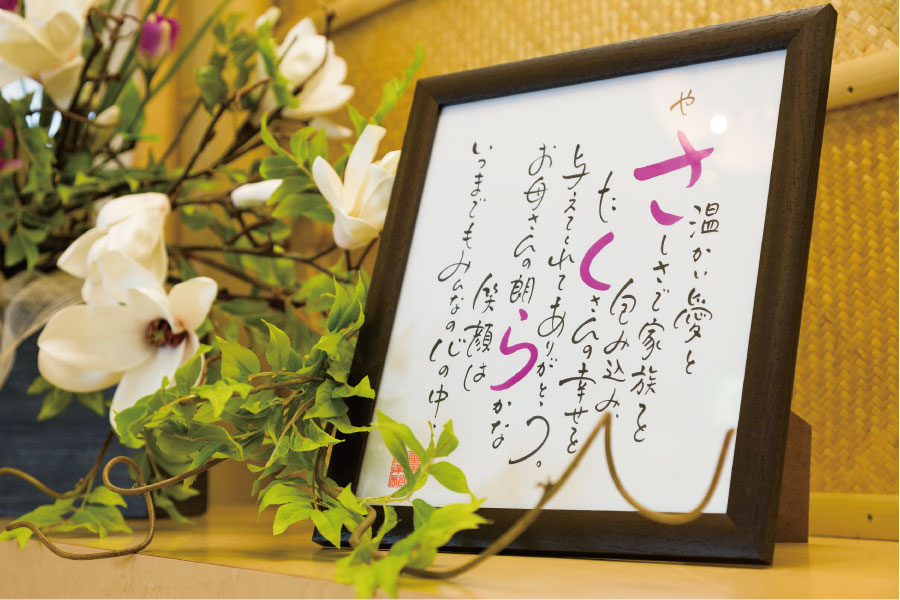 温かい愛と
やさしさで家族を
包み込み、
たくさんの幸せを
与えてくれてありがとう。
お母さんの朗らかな
笑顔は
いつまでもみんなの心の中